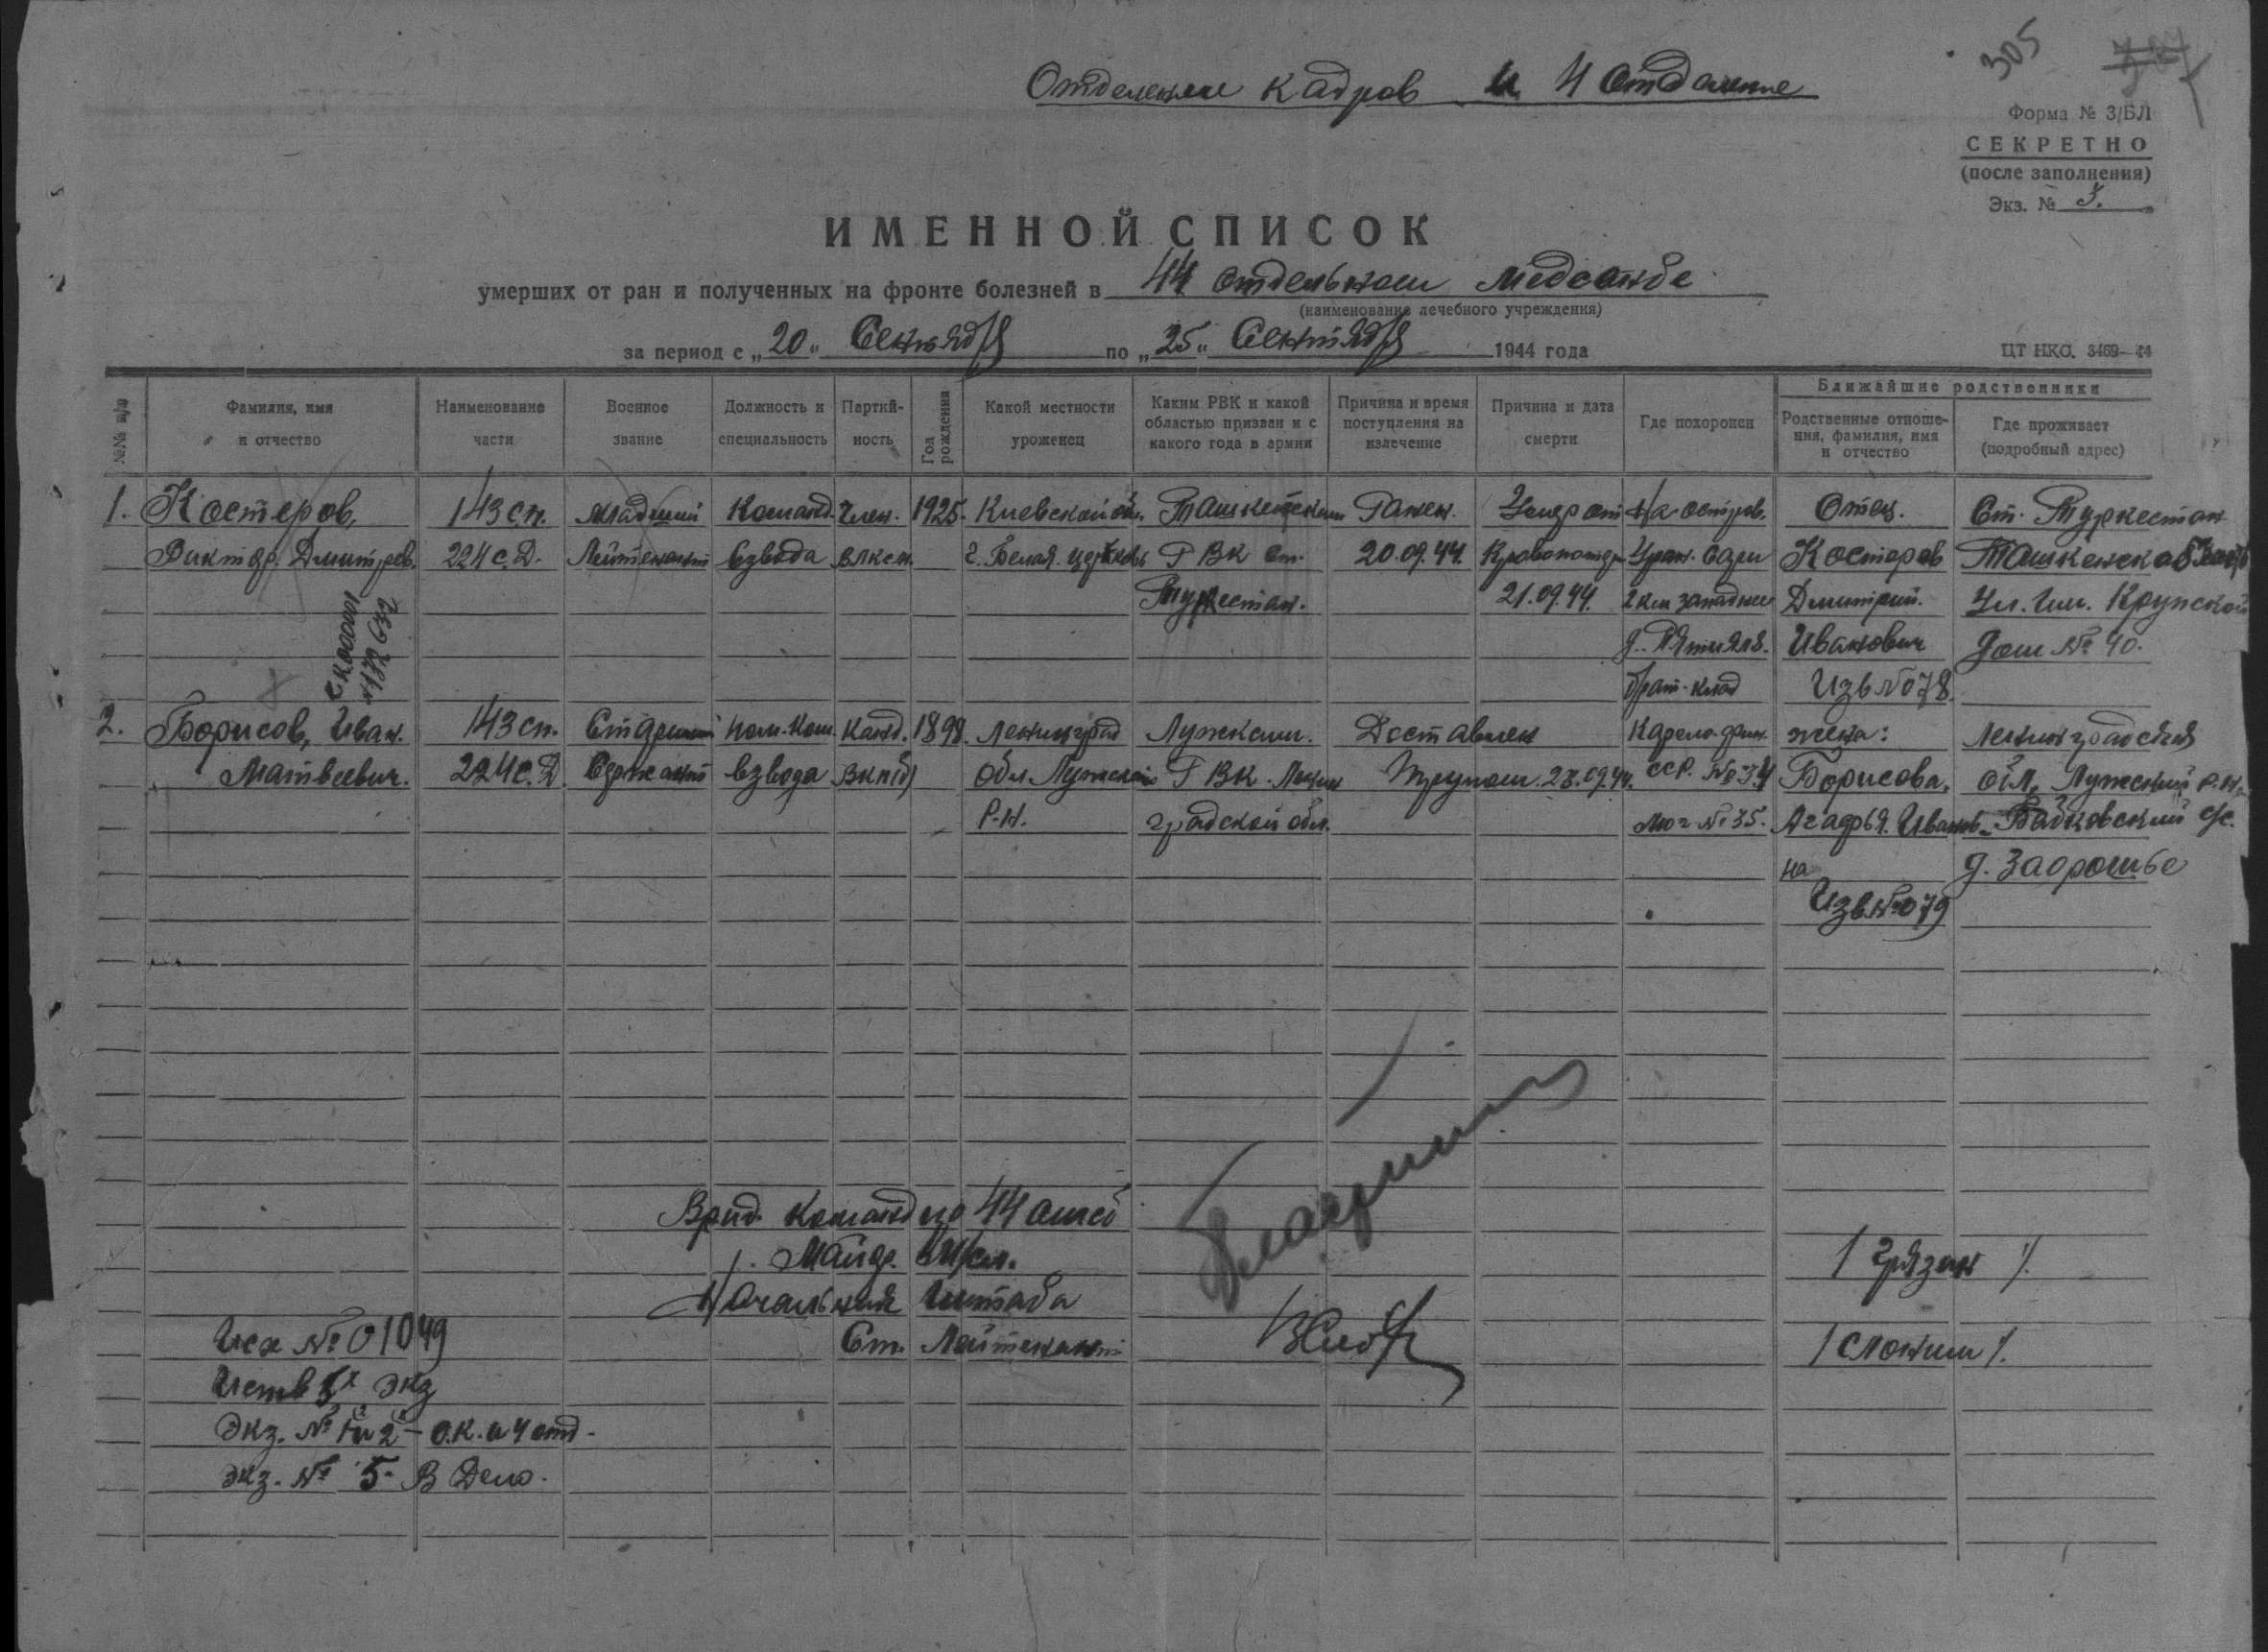 305
Отделение кадров и 4 отдаление
Форма № 3/БЛ
СЕКРЕТНО
(после заполнения)
Экз. № 3.
ИМЕННОЙ СПИСОК
умерших от ран и полученных на фронте болезней в 44 отдельном медсанбе
(наименование лечебного учреждения)
за период с „20“ Сентября по „25“ Сентября 1944 года
ЦТ НКО. 3469—44
№№ п/п
Фамилия, имя и отчество
Наименование части
Военное звание
Должность и специальность
Партийность
Год рождения
Какой местности уроженец
Каким РВК и какой областью призван и с какого года в армии
Причина и время поступления на излечение
Причина и дата смерти
Где похоронен
Ближайшие родственники
Родственные отношения, фамилия, имя и отчество
Где проживает (подробный адрес)
1. Костеров, 143 сп. младший Команд. Член. 1925. Киевской обл. Ташкентским Ранен. Умер от На остров. Отец. Ст. Туркестан
Виктор Дмитрев. 224 с.Д. Лейтенант Взвода ВЛКСМ. г. Белая церковь РВК ст. 20.09.44. Кровопотери Уран. Сари Костеров
Туркестан. 21.09.44. 2 км западнее Дмитрий. Ул. Им. Крупской
д. Иванович Дом № 40.
брат. клад Изв № 078.
2. Борисов, Иван. 143 сп. Старший пом. Ком. Канд. 1898. Ленинград Лужским. Доставлен Карело-фин. жена: Ленинградская
Матвеевич. 224 с.Д. Сержант взвода ВКП(б) обл Лужский РВК. Ленин Трупом. 23.09.44. ССР. № 34 Борисова, обл, Лужский р-н,
Р-н. градской обл. мог № 35. Агафья. Иванов- с/с.
на д.
Изв № 079
Врид. командира 44 омсб
Майор. М/сл.
/ Грязин /
Начальник Штаба
Ст. Лейтенант
/ Слоним /.
Исх № 01049
экз
Экз. № 1 и 2 – О.К. и 4 отд.
Экз. № 5 - В Дело.